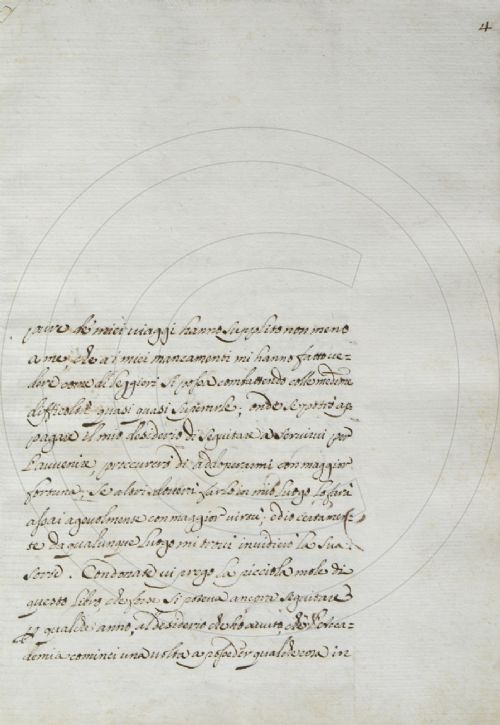 4
paure de miei viaggi hanno supplito non meno
a me, che a i miei mancamenti mi hanno fatto ve-
dere come di leggieri si possa combattendo colle medeme
difficoltà quasi quasi superarle; onde se potrò ap-
pagare il mio desiderio di seguitare a servirvi per
l'avvenire, proccurerò di addoperarmi con maggior
fortuna; Se altri farlo in mio luogo, lo farà
assai agevolmente con maggior virtù; ed io certamen-
te da qualunque luogo mi trovi invidierò la sua
sorte. Condonate vi prego la picciola mole di
questo libro che forse si poteva ancora seguitare
per qualche anno, al desiderio che ho avuto, che l'Acca-
demia cominci una volta a posseder qualche cosa in